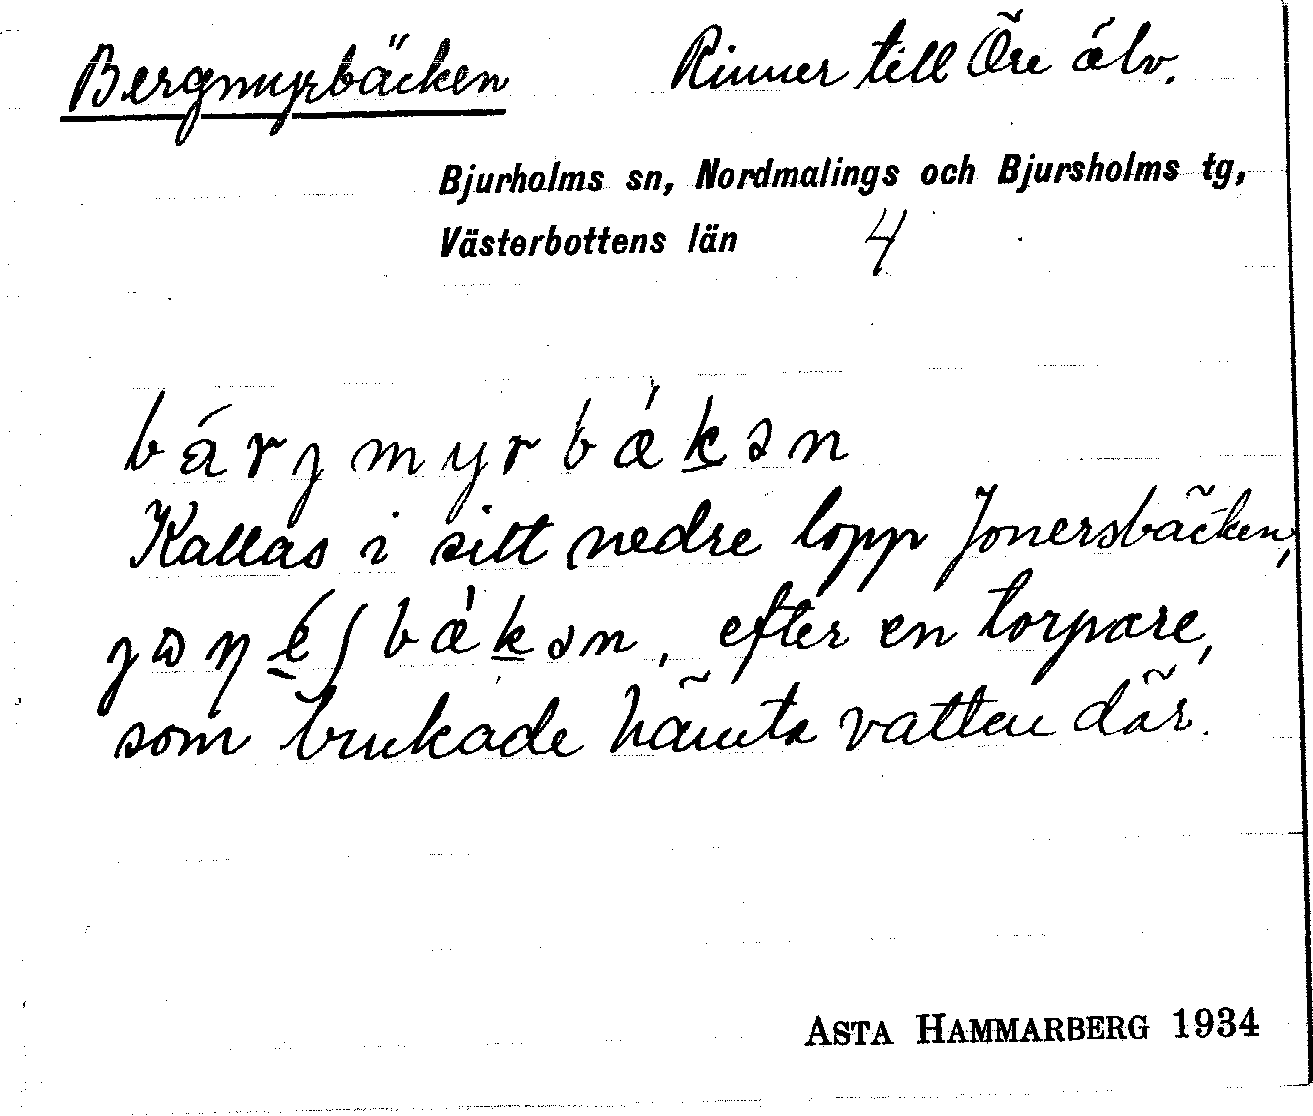 Bergmyrbäcken Rinner till Öre älv.
Bjurholms sn, Nordmalings och Bjursholms tg,
Västerbottens län 4
bárȷmyrbǽk̲ən
Kallas i sitt nedre lopp Jonersbäcken,
ȷɷŋé̲ʃbǽk̲ən, efter en torpare,
som brukade hämta vatten där.
ASTA HAMMARBERG 1934